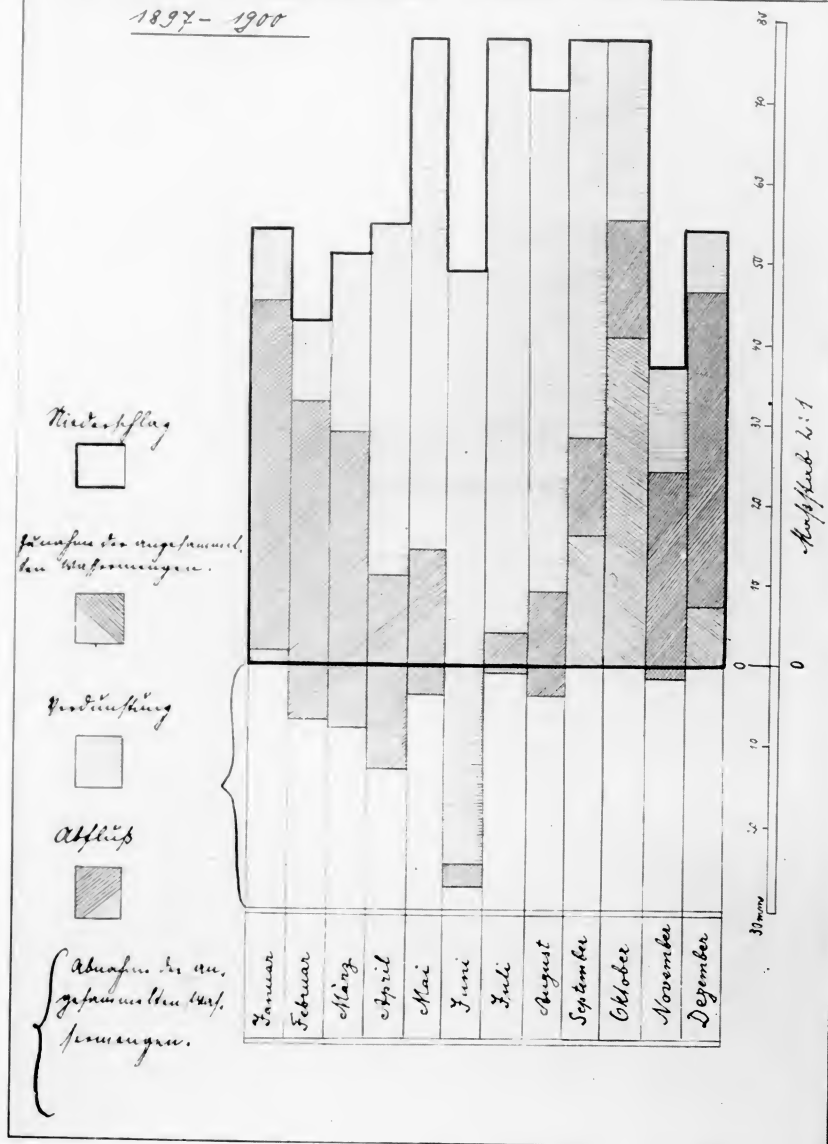 1897 - 1900
Niederschlag
Zunahme der angesammel-
ten Wassermengen.
Verdunstung
Abfluß
Abnahme der an-
gesammelten Was-
sermengen.
Januar
Februar
März
April
Mai
Juni
Juli
August
September
Oktober
November
Dezember
80
70
60
50
40
30
20
10
0
10
20
30 mm
0
Maßstab 2:1